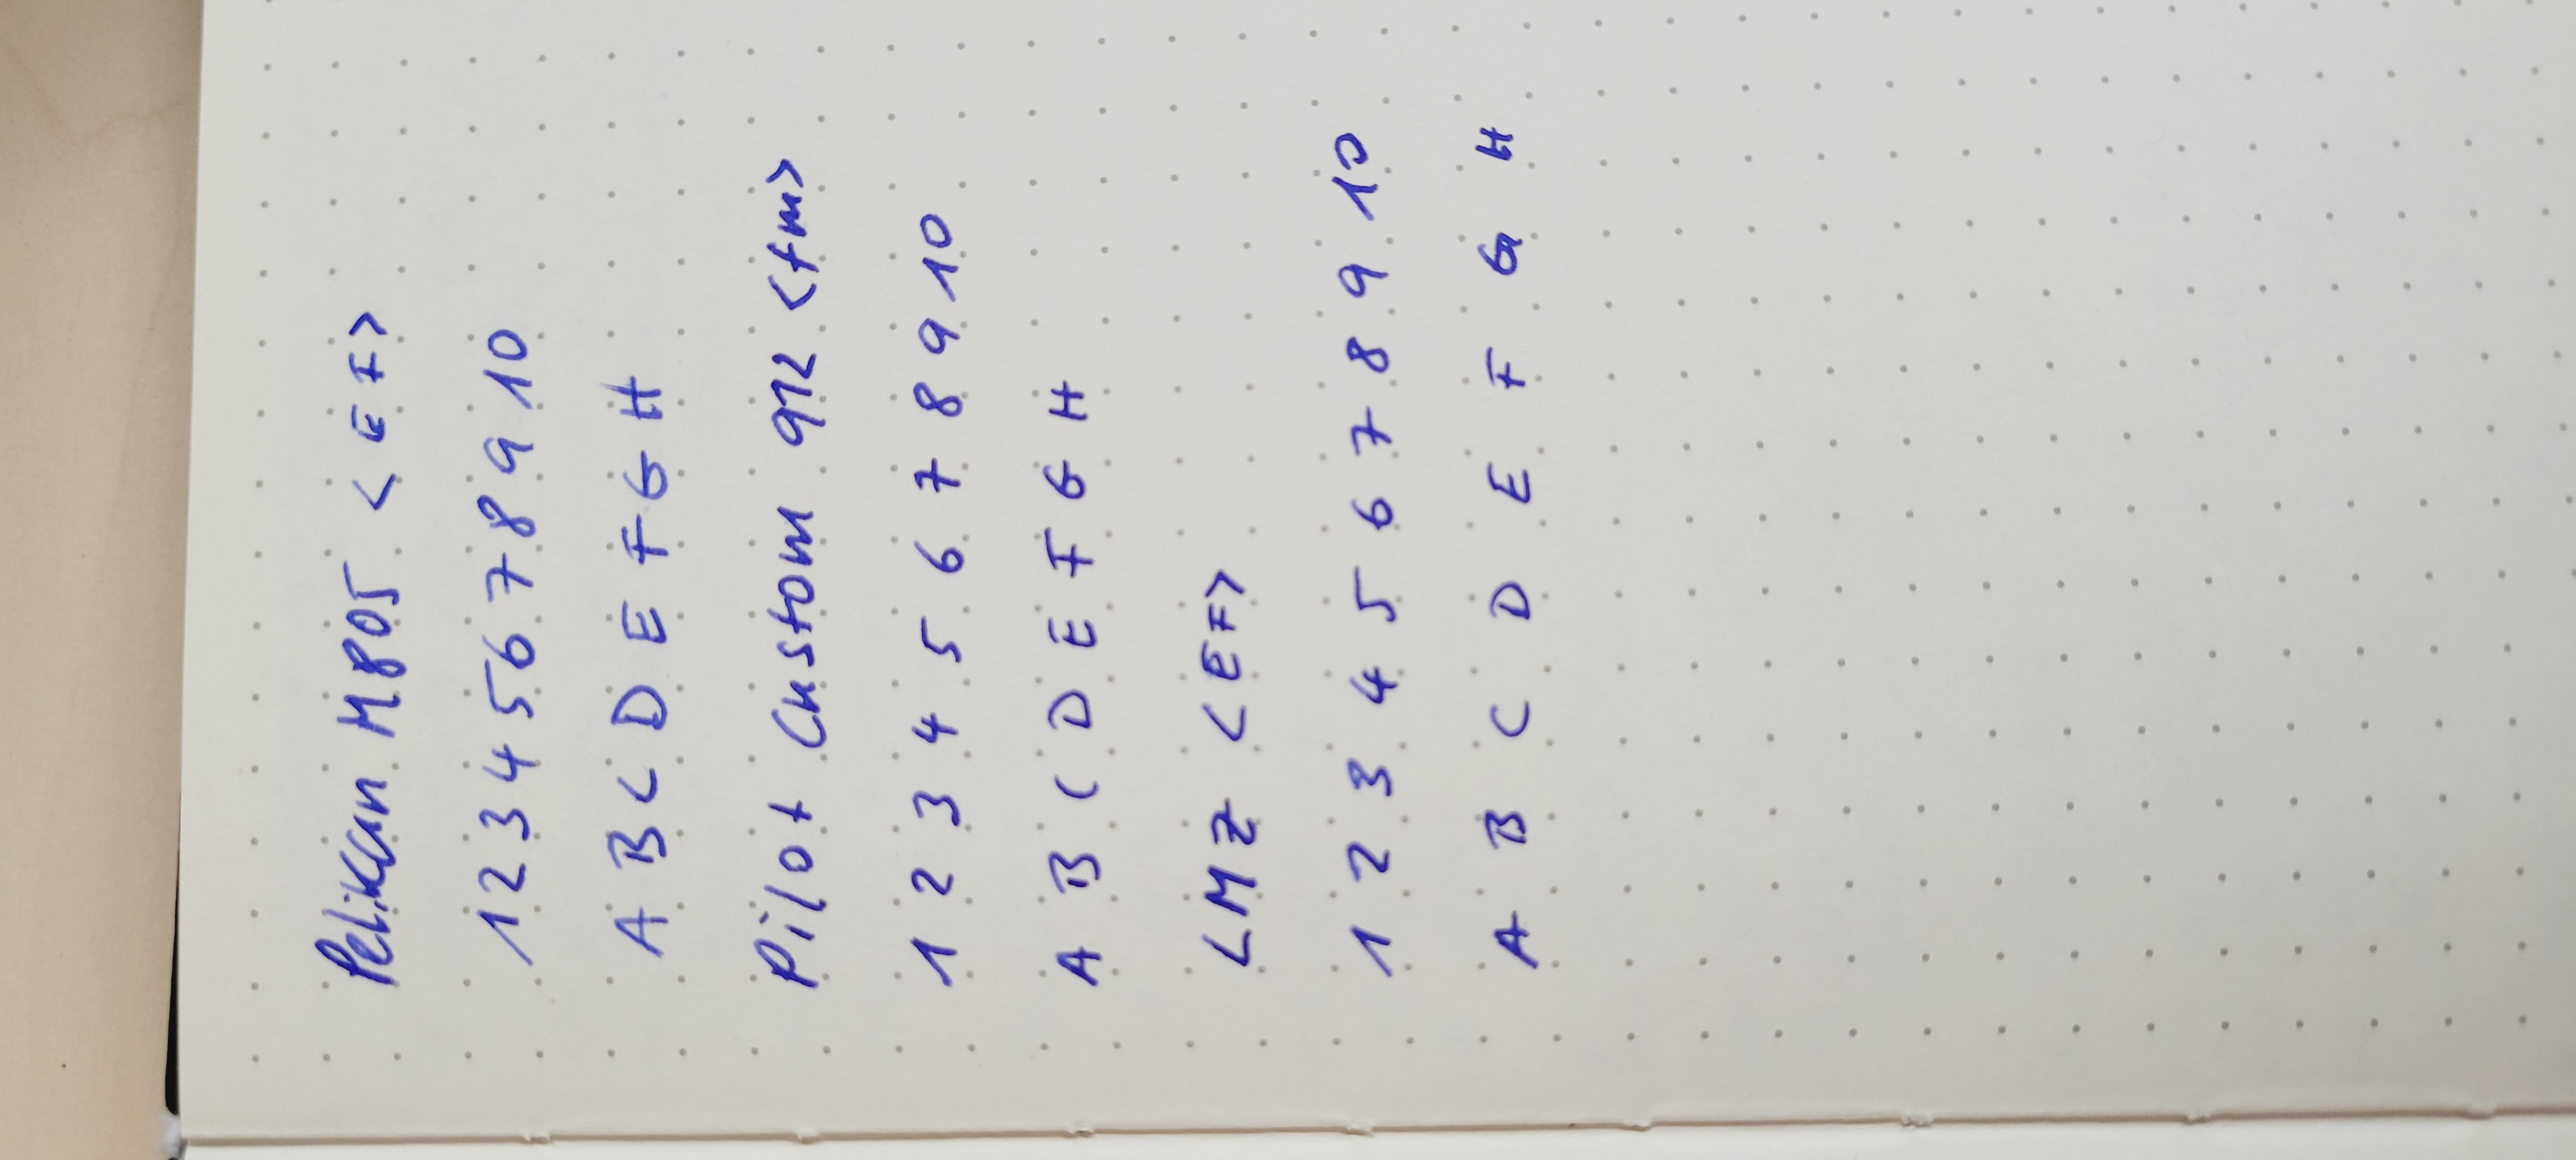 Pelikan M805 <EF>
1 2 3 4 5 6 7 8 9 10
A B C D E F G H
Pilot Custom 912 <fm>
1 2 3 4 5 6 7 8 9 10
A B C D E F G H
LMZ <EF>
1 2 3 4 5 6 7 8 9 10
A B C D E F G H